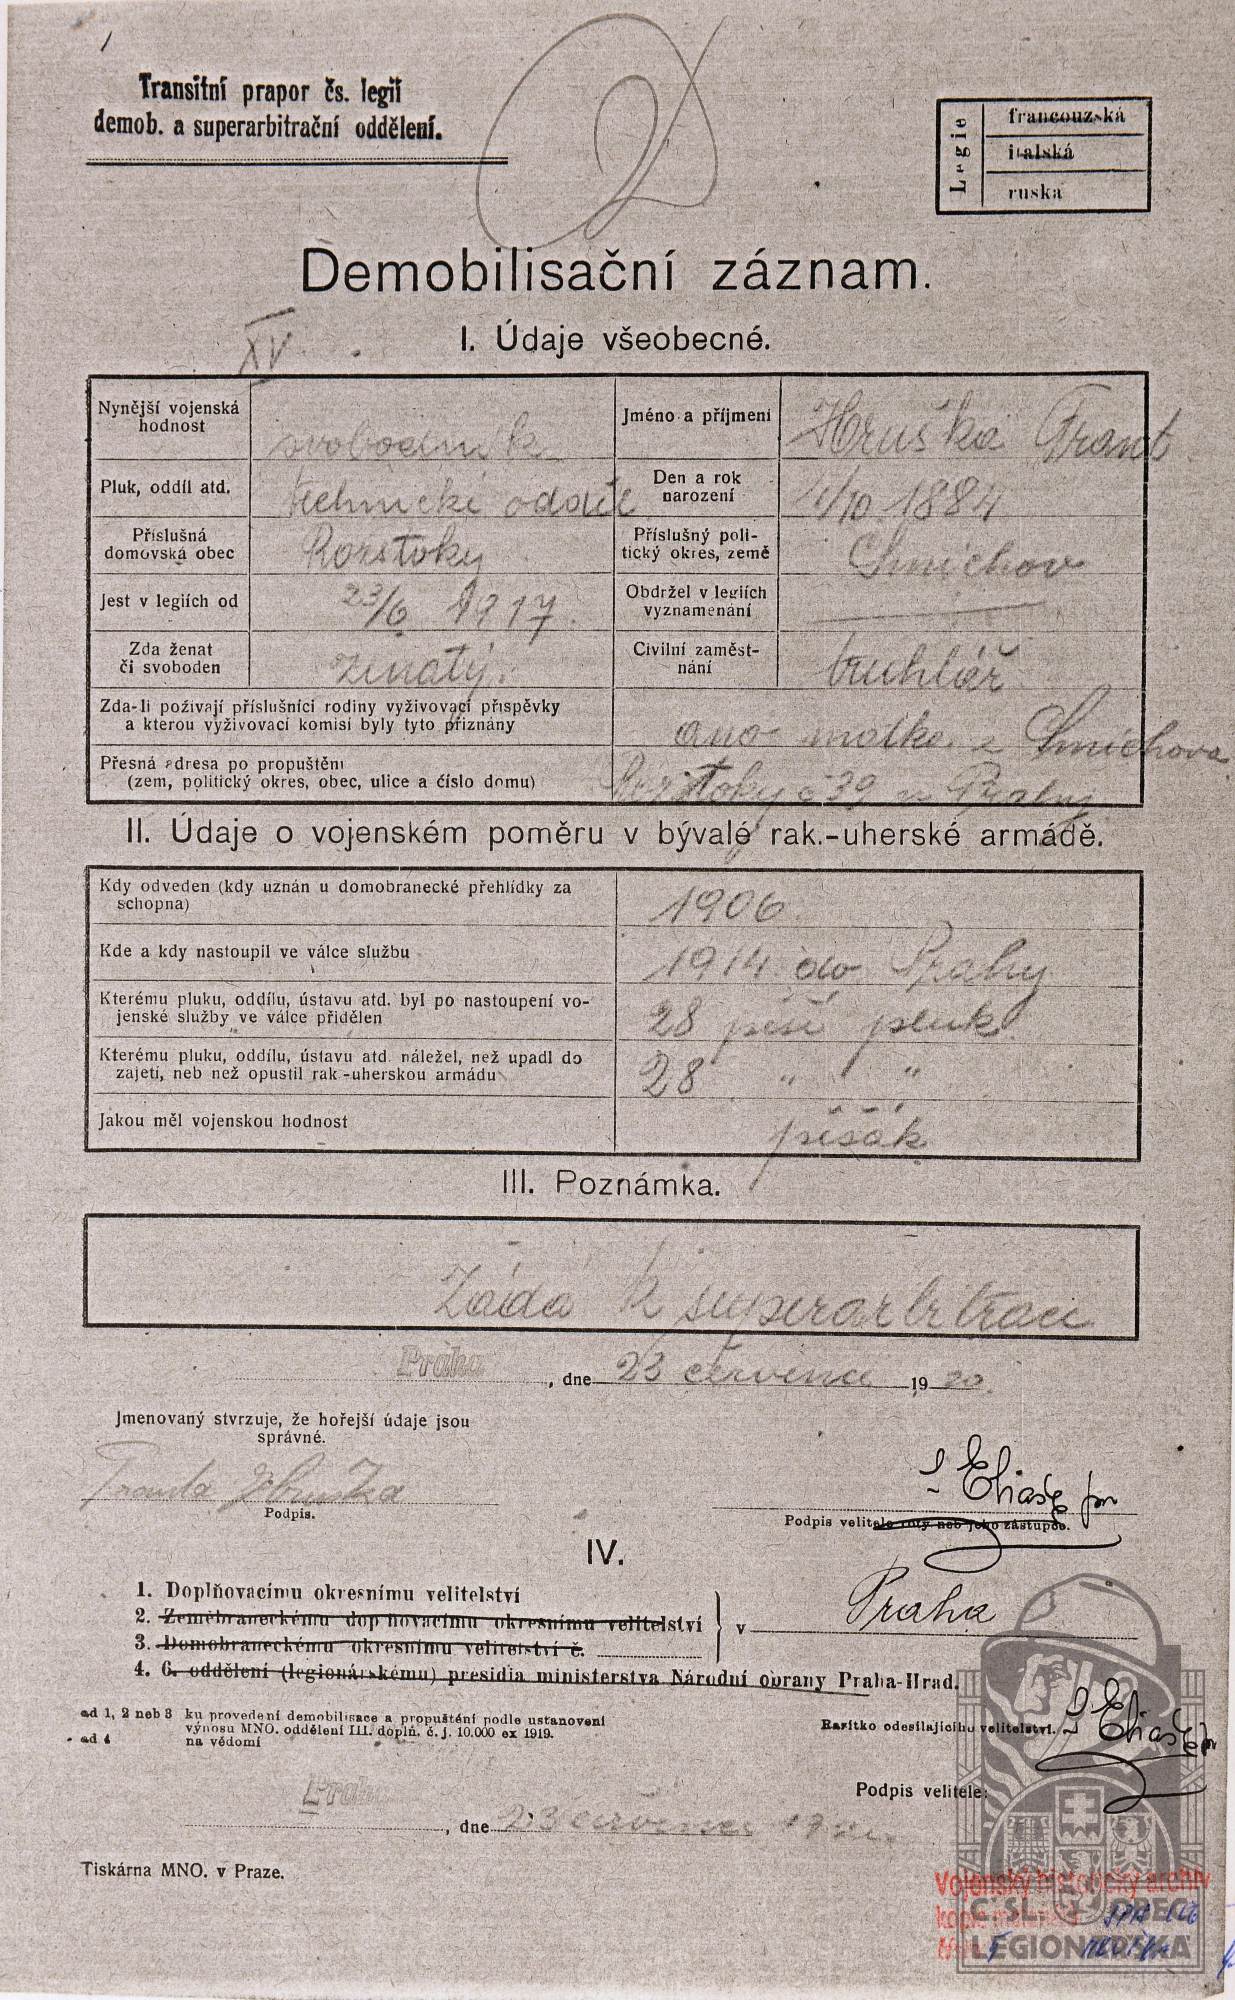 Transitní prapor čs. legií
demob. a superarbitrační oddělení.
Legie
francouzská
italská
ruska
Demobilisační záznam.
XV
I. Údaje všeobecné.
Nynější vojenská hodnost svobodník
Jméno a příjmení Hruška Frant.
Pluk, oddíl atd. technické odděl
Den a rok narození 4/10. 1884
Příslušná domovská obec Rorstoky
Příslušný politický okres, země Smichov
Jest v legiích od 23/6 1917.
Obdržel v legiích vyznamenání
Zda ženat či svoboden ženatý.
Civilní zaměstnání truhlář
Zda-li požívají příslušníci rodiny vyživovací příspěvky
a kterou vyživovací komisí byly tyto přiznány
ano matka z Smichova
Přesná adresa po propuštění
(zem, politický okres, obec, ulice a číslo domu)
Rorstoky č 39 u Prahy
II. Údaje o vojenském poměru v bývalé rak.-uherské armádě.
Kdy odveden (kdy uznán u domobranecké přehlídky za
schopna)
1906
Kde a kdy nastoupil ve válce službu
1914 do Prahy
Kterému pluku, oddílu, ústavu atd. byl po nastoupení vo-
jenské služby ve válce přidělen
28 pěší pluk
Kterému pluku, oddílu, ústavu atd. náležel, než upadl do
zajetí, neb než opustil rak-uherskou armádu
28 " "
Jakou měl vojenskou hodnost
pěšák
III. Poznámka.
Žádá k superarbitraci
Praha, dne 23 července 1920.
Jmenovaný stvrzuje, že hořejší údaje jsou
správné.
Franta Hruška
Podpis.
Eliaš
Podpis velitele roty neb jeho zástupce.
IV.
1. Doplňovacímu okresnímu velitelství
2. Zeměbraneckému doplňovacímu okresnímu velitelství
3. Domobraneckému okresnímu velitelství č.
v Praha
4. 6. oddělení (legionářskému) presidia ministerstva Národní obrany Praha-Hrad.
ad 1, 2 neb 3 ku provedení demobilisace a propuštění podle ustanovení
výnosu MNO. oddělení III. doplň. č. j. 10.000 ex 1919.
ad 4 na vědomí
Razítko odesílajícího velitelství.
Eliaš
Podpis velitele:
Praha, dne 23 července
Tiskárna MNO. v Praze.
Vojenský historický archiv
ČSL. OBEC
LEGIONÁŘSKÁ